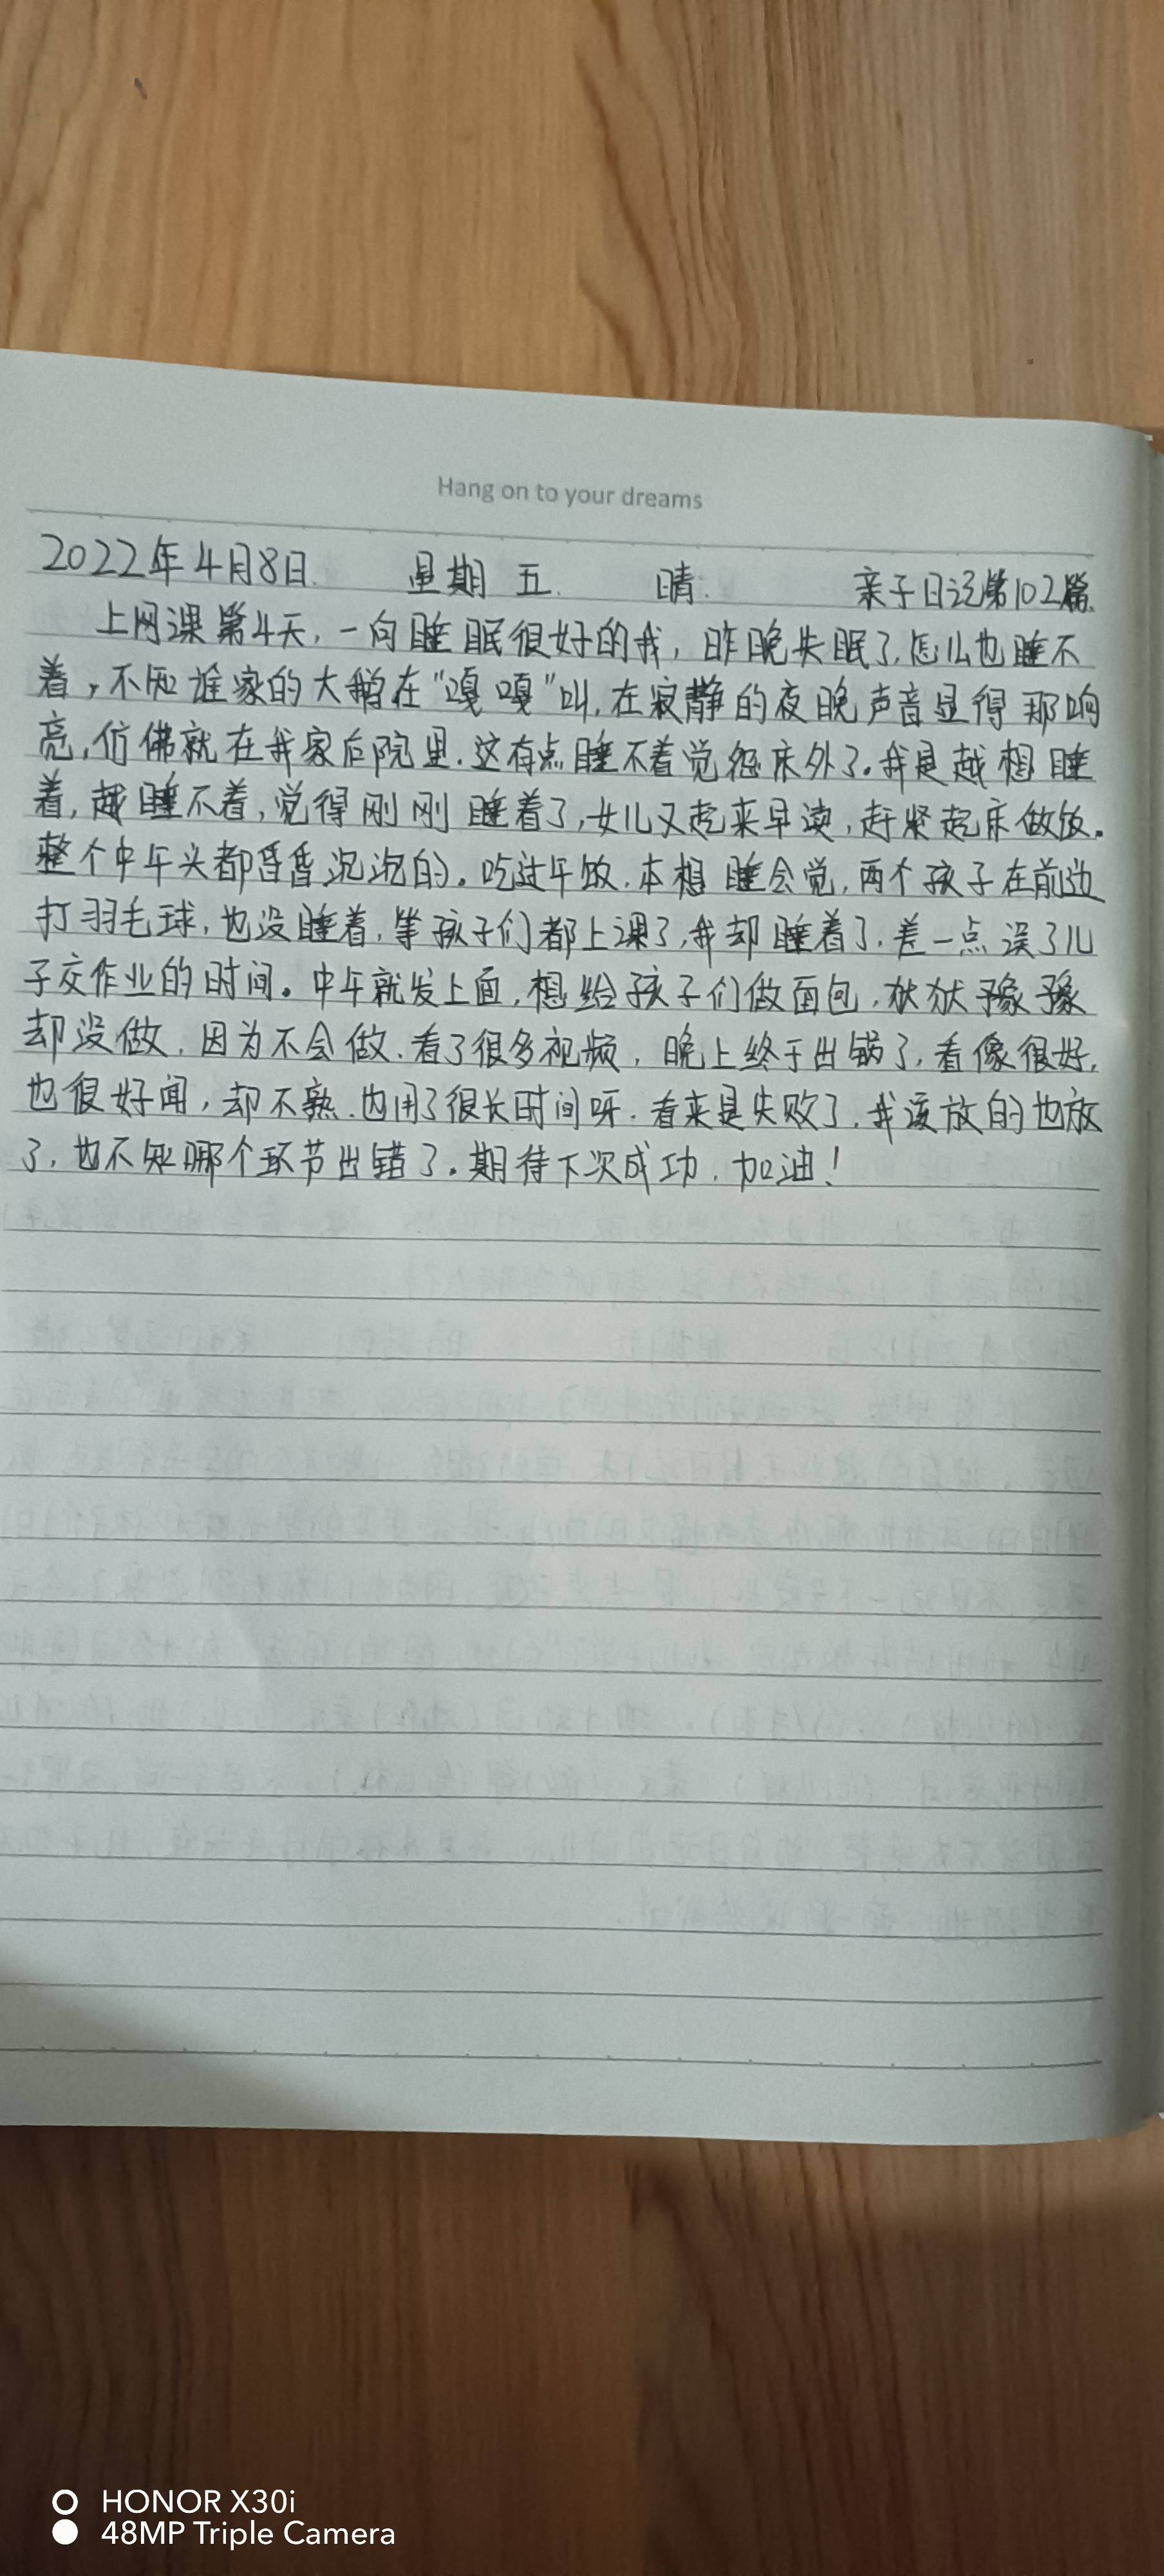 Hang on to your dreams
2022年4月8日. 星期五. 晴. 亲子日记第102篇.
上网课第4天,一向睡眠很好的我,昨晚失眠了,怎么也睡不
着,不知谁家的大鹅在“嘎嘎”叫,在寂静的夜晚声音显得那响
亮,仿佛就在我家后院里.这有点睡不着觉怨床外了。我是越想睡
着,越睡不着,觉得刚刚睡着了,女儿又起来早读,赶紧起床做饭。
整个中午头都昏昏沉沉的。吃过午饭.本想睡会觉,两个孩子在前边
打羽毛球,也没睡着,等孩子们都上课了,我却睡着了.差一点误了儿
子交作业的时间。中午就发上面,想给孩子们做面包,犹犹豫豫
却没做.因为不会做.看了很多视频,晚上终于出锅了,看像很好,
也很好闻,却不熟.也用了很长时间呀.看来是失败了,我该放的也放
了,也不知哪个环节出错了。期待下次成功.加油!
HONOR X30i
48MP Triple Camera